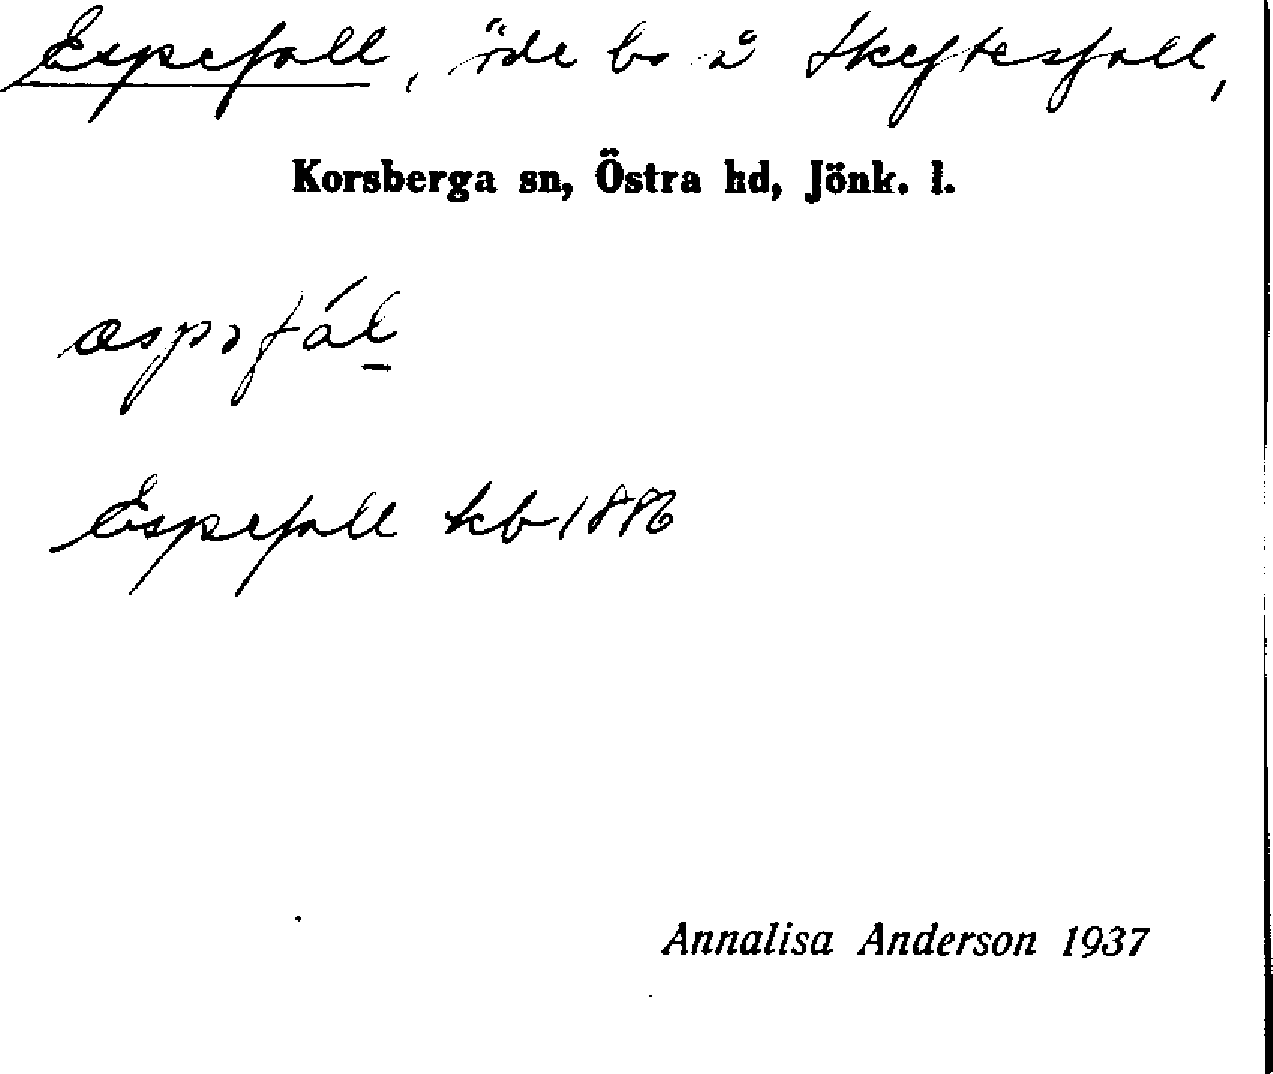 Espefall, öde bs å Skeftesfall,
Korsberga sn, Östra hd, Jönk. l.
æspəfál
Espefall kb 1886
Annalisa Anderson 1937